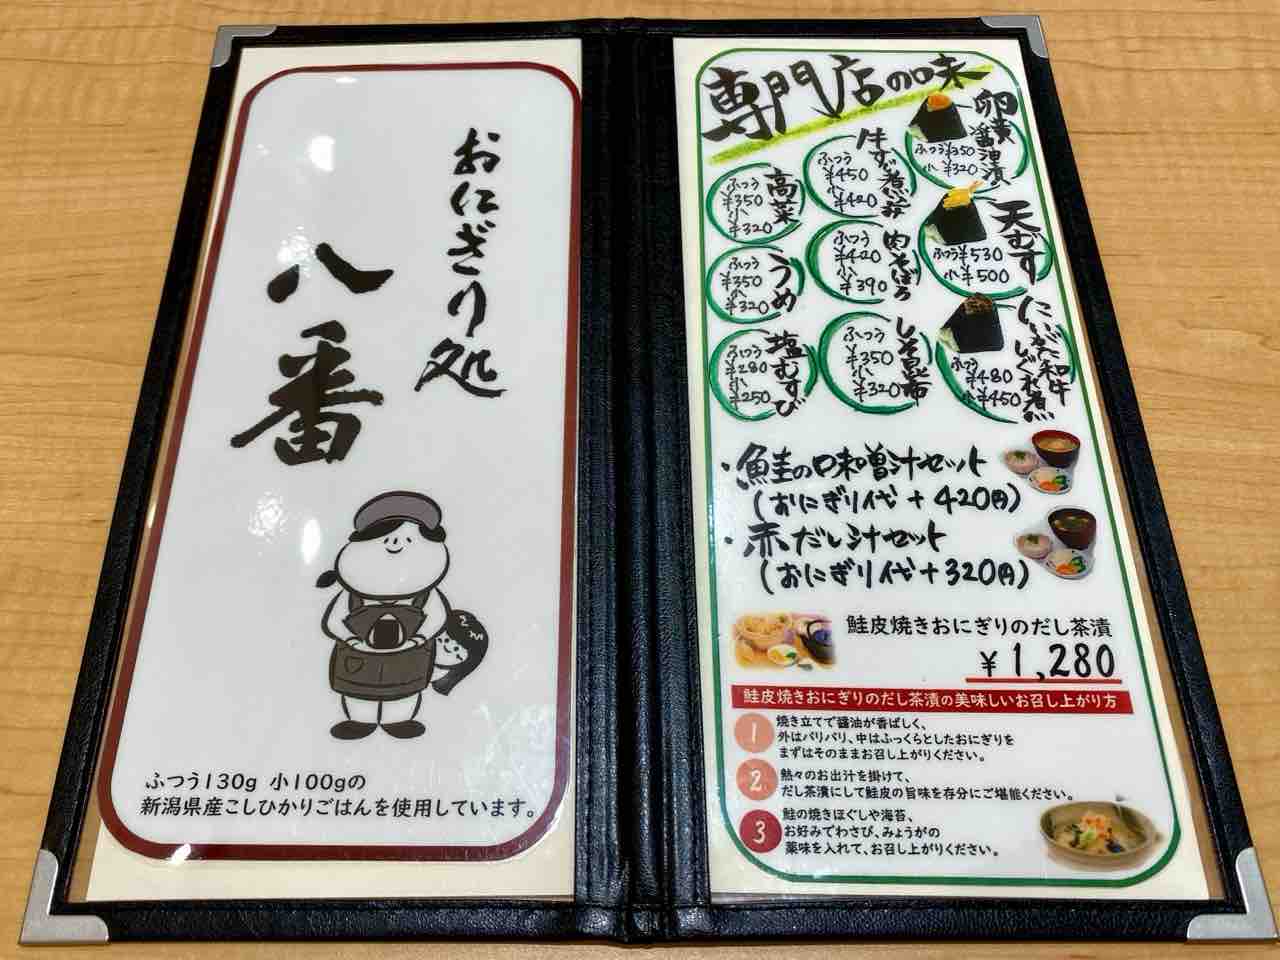 おにぎり処
八番
ふつう130g 小100gの
新潟県産こしひかりごはんを使用しています。
専門店の味
卵黄醤油漬
ふつう¥350
小¥320
天むす
ふつう¥530
小¥500
にいがた和牛
しぐれ煮
ふつう¥480
小¥450
牛すじ煮込み
ふつう
¥450
小
¥420
肉そぼろ
ふつう
¥420
小
¥390
しそ昆布
ふつう
¥350
小
¥320
高菜
ふつう
¥350
小
¥320
うめ
ふつう
¥350
小
¥320
塩むすび
ふつう
¥280
小
¥250
・鮭の味噌汁セット
(おにぎり代+420円)
・赤だし汁セット
(おにぎり代+320円)
鮭皮焼きおにぎりのだし茶漬
¥1,280
鮭皮焼きおにぎりのだし茶漬の美味しいお召し上がり方
1
焼き立てで醤油が香ばしく、
外はパリパリ、中はふっくらとしたおにぎりを
まずはそのままお召し上がりください。
2
熱々のお出汁を掛けて、
だし茶漬にして鮭皮の旨味を存分にご堪能ください。
3
鮭の焼きほぐしや海苔、
お好みでわさび、みょうがの
薬味を入れて、お召し上がりください。